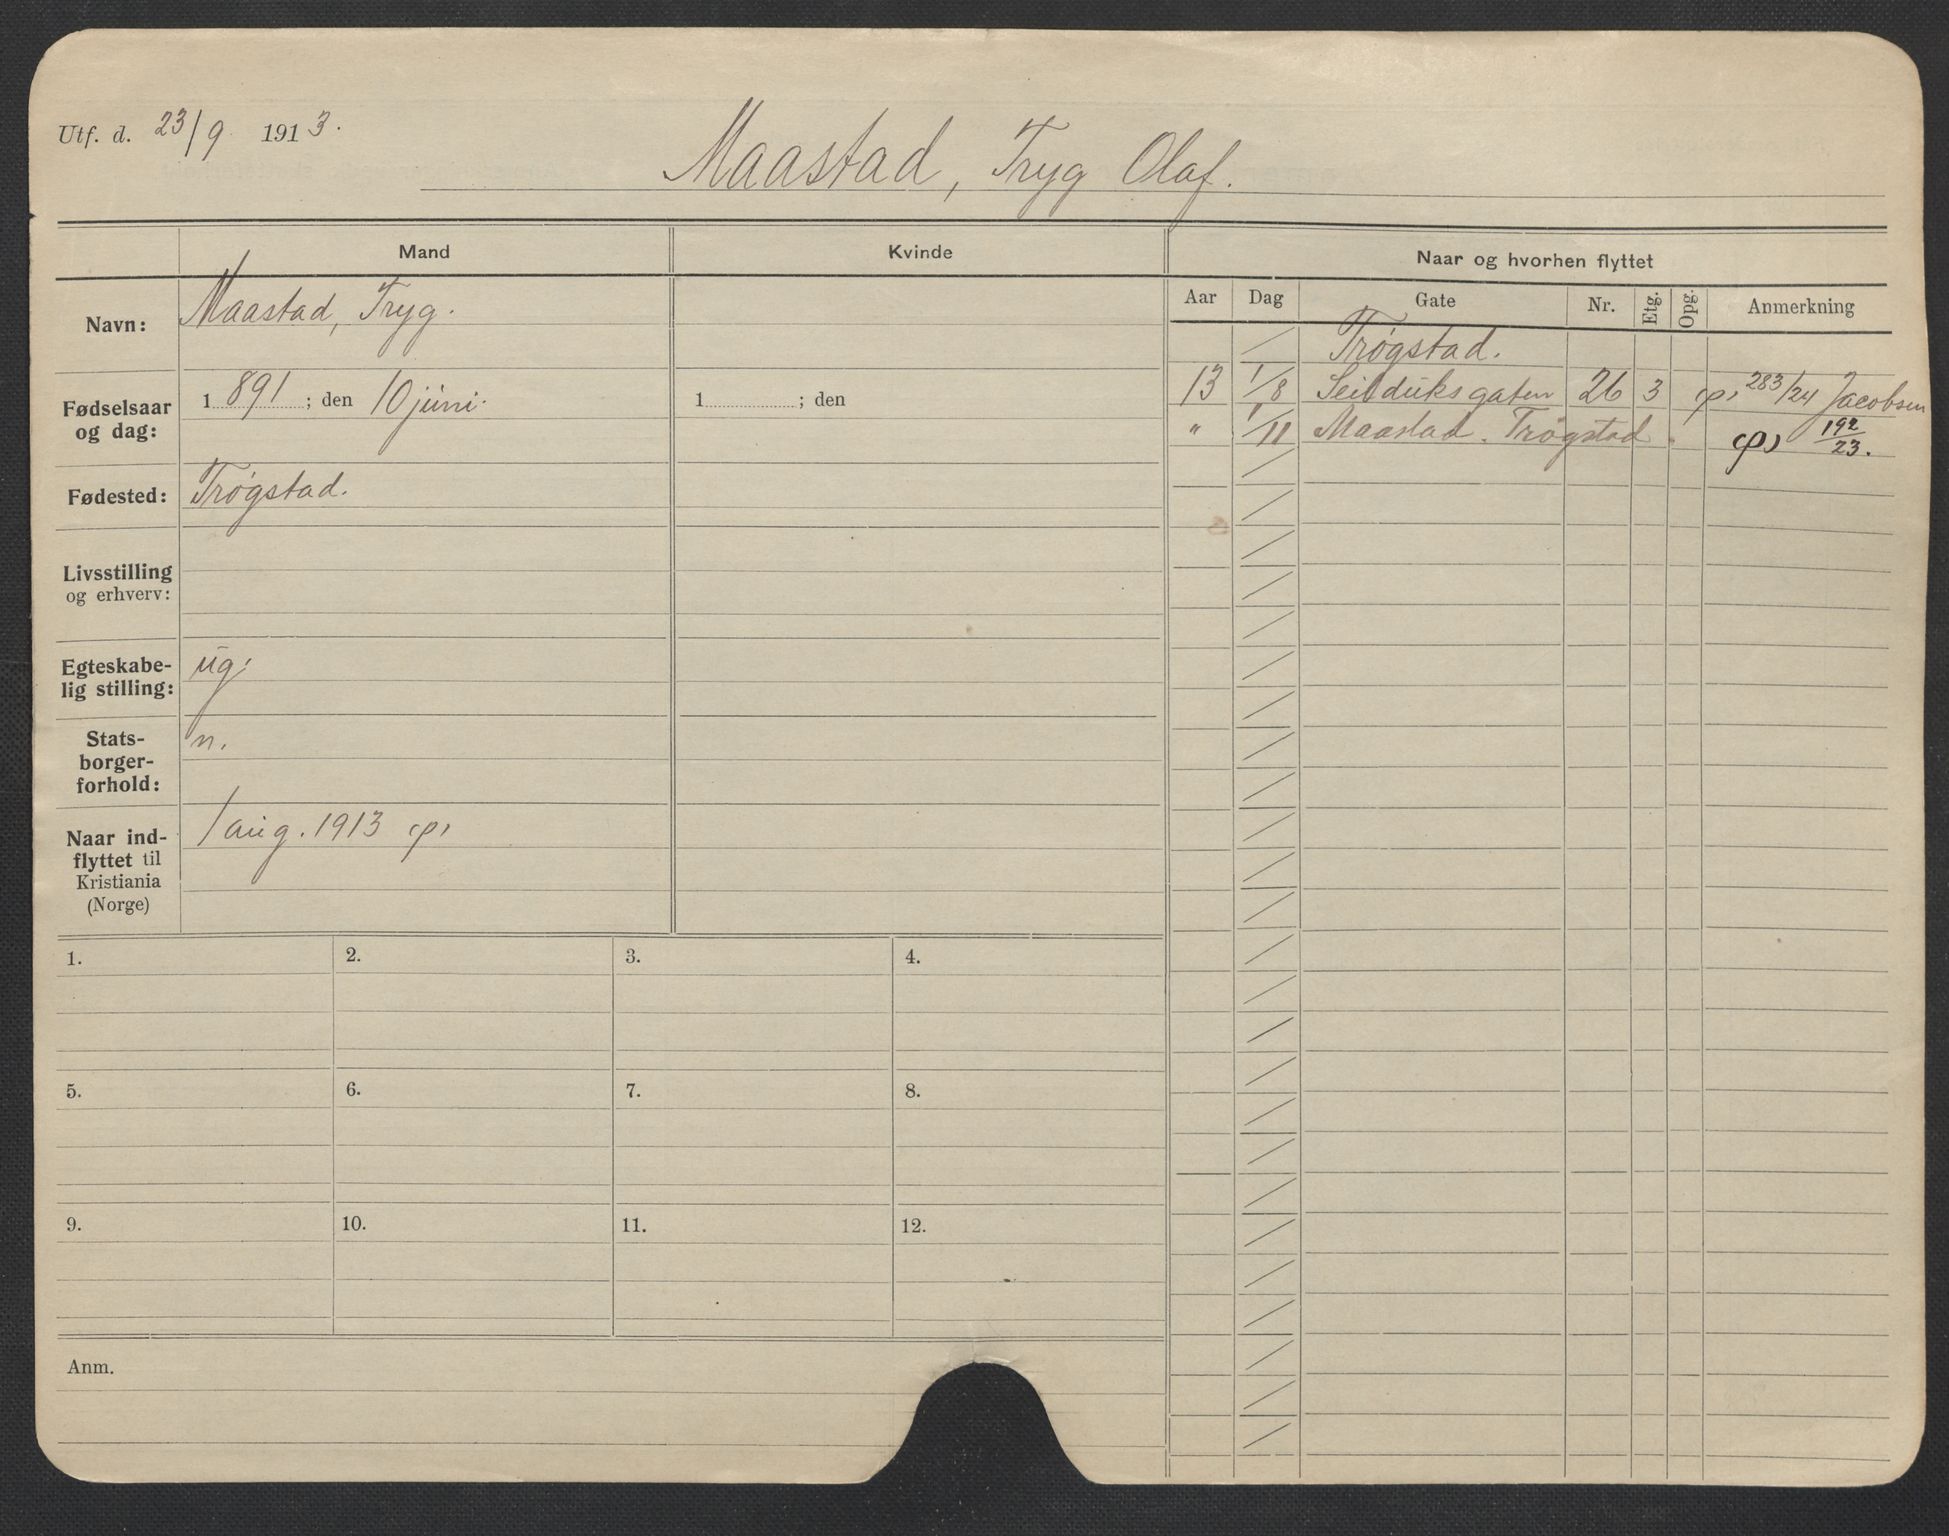 Utf. d. 23/9 1913.
Maastad, Tryg Olaf.
Mand
Kvinde
Naar og hvorhen flyttet
Aar Dag Gate Nr. Etg. Opg. Anmerkning
Navn: Maastad, Tryg.
Fødselsaar og dag: 1 891 ; den 10 juni. 1 ; den
Fødested: Trøgstad.
Livsstilling
og erhverv:
Egteskabe-
lig stilling: ug.
Stats-
borger-
forhold: n.
Naar ind-
flyttet til
Kristiania
(Norge) 1 aug. 1913 (p)
Trøgstad.
13 1/8 Seilduksgaten 26 3 (p) 283/24 Jacobsen
" 1/11 Maastad. Trøgstad. (p) 192/23.
1. 2. 3. 4.
5. 6. 7. 8.
9. 10. 11. 12.
Anm.